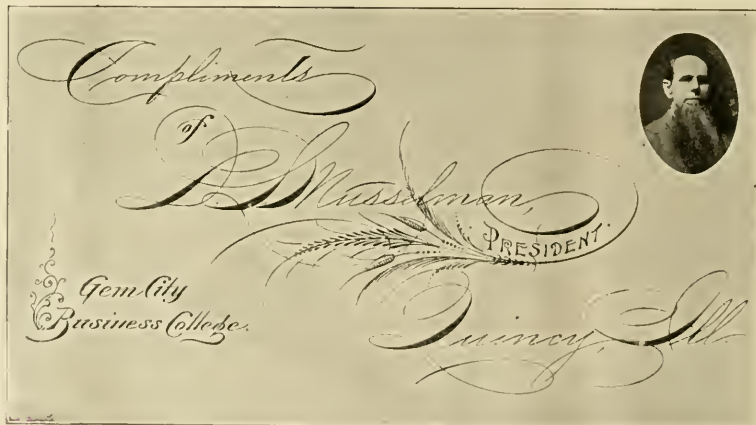 Compliments
of
D. L. Musselman,
PRESIDENT.
Gem City
Business College.
Quincy, Ill